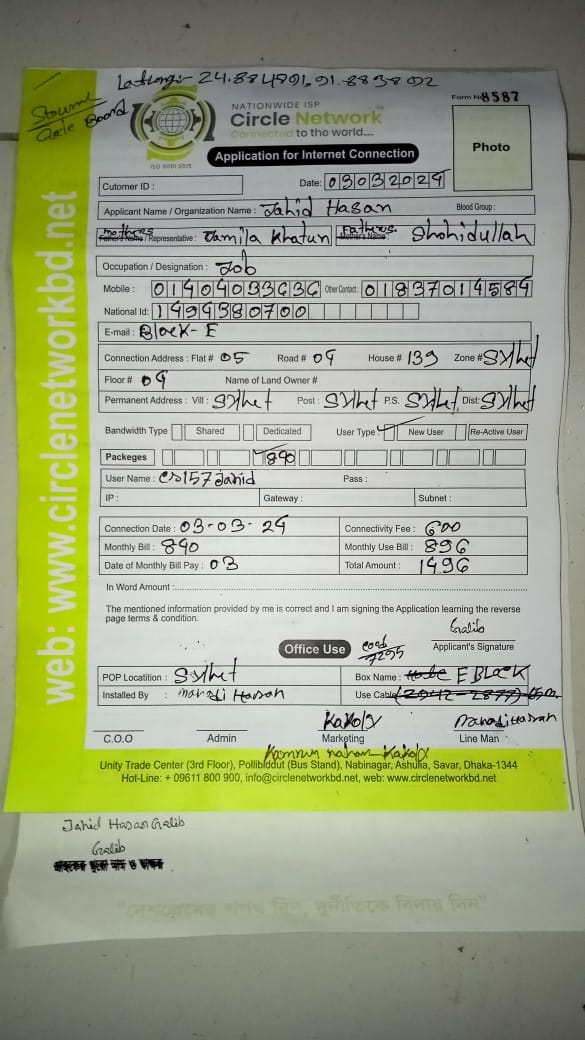 Latlong:- 24.884891,91.883802
Gate Board
NATIONWIDE ISP
Circle Network
Connected to the world.....
ISO 9001:2015
Form No 8587
Photo
Application for Internet Connection
Cutomer ID :
Date: 03032024
Applicant Name / Organization Name : Jahid Hasan Blood Group :
mothers Father's Name / Representative : Jamila Khatun Fathers Mother's Name Shohidullah
Occupation / Designation : Job
Mobile : 01404033636 Other Contact : 01837014584
National Id: 1494380700
E-mail : Block-E
Connection Address : Flat # 05 Road # 04 House # 139 Zone # Sylhet
Floor # 04 Name of Land Owner #
Permanent Address : Vill : Sylhet Post : Sylhet P.S. Sylhet Dist: Sylhet
Bandwidth Type Shared Dedicated User Type New User Re-Active User
Packeges 840
User Name : Jahid Pass :
IP : Gateway : Subnet :
Connection Date : 03-03-24 Connectivity Fee : 600
Monthly Bill : 840 Monthly Use Bill : 896
Date of Monthly Bill Pay : 03 Total Amount : 1496
In Word Amount :
The mentioned information provided by me is correct and I am signing the Application learning the reverse
page terms & condition.
Galib
Applicant's Signature
Office Use
7295
POP Locatition : Sylhet Box Name : E BLOCK
Installed By : Hassan Use Cable (2942-2877)
Kakoly
C.O.O Admin Marketing Line Man
Kamrun nahar Kakoly
Unity Trade Center (3rd Floor), Pollibiddut (Bus Stand), Nabinagar, Ashulia, Savar, Dhaka-1344
Hot-Line: + 09611 800 900, info@circlenetworkbd.net, web: www.circlenetworkbd.net
web: www.circlenetworkbd.net
Jahid Hasan Galib
Galib